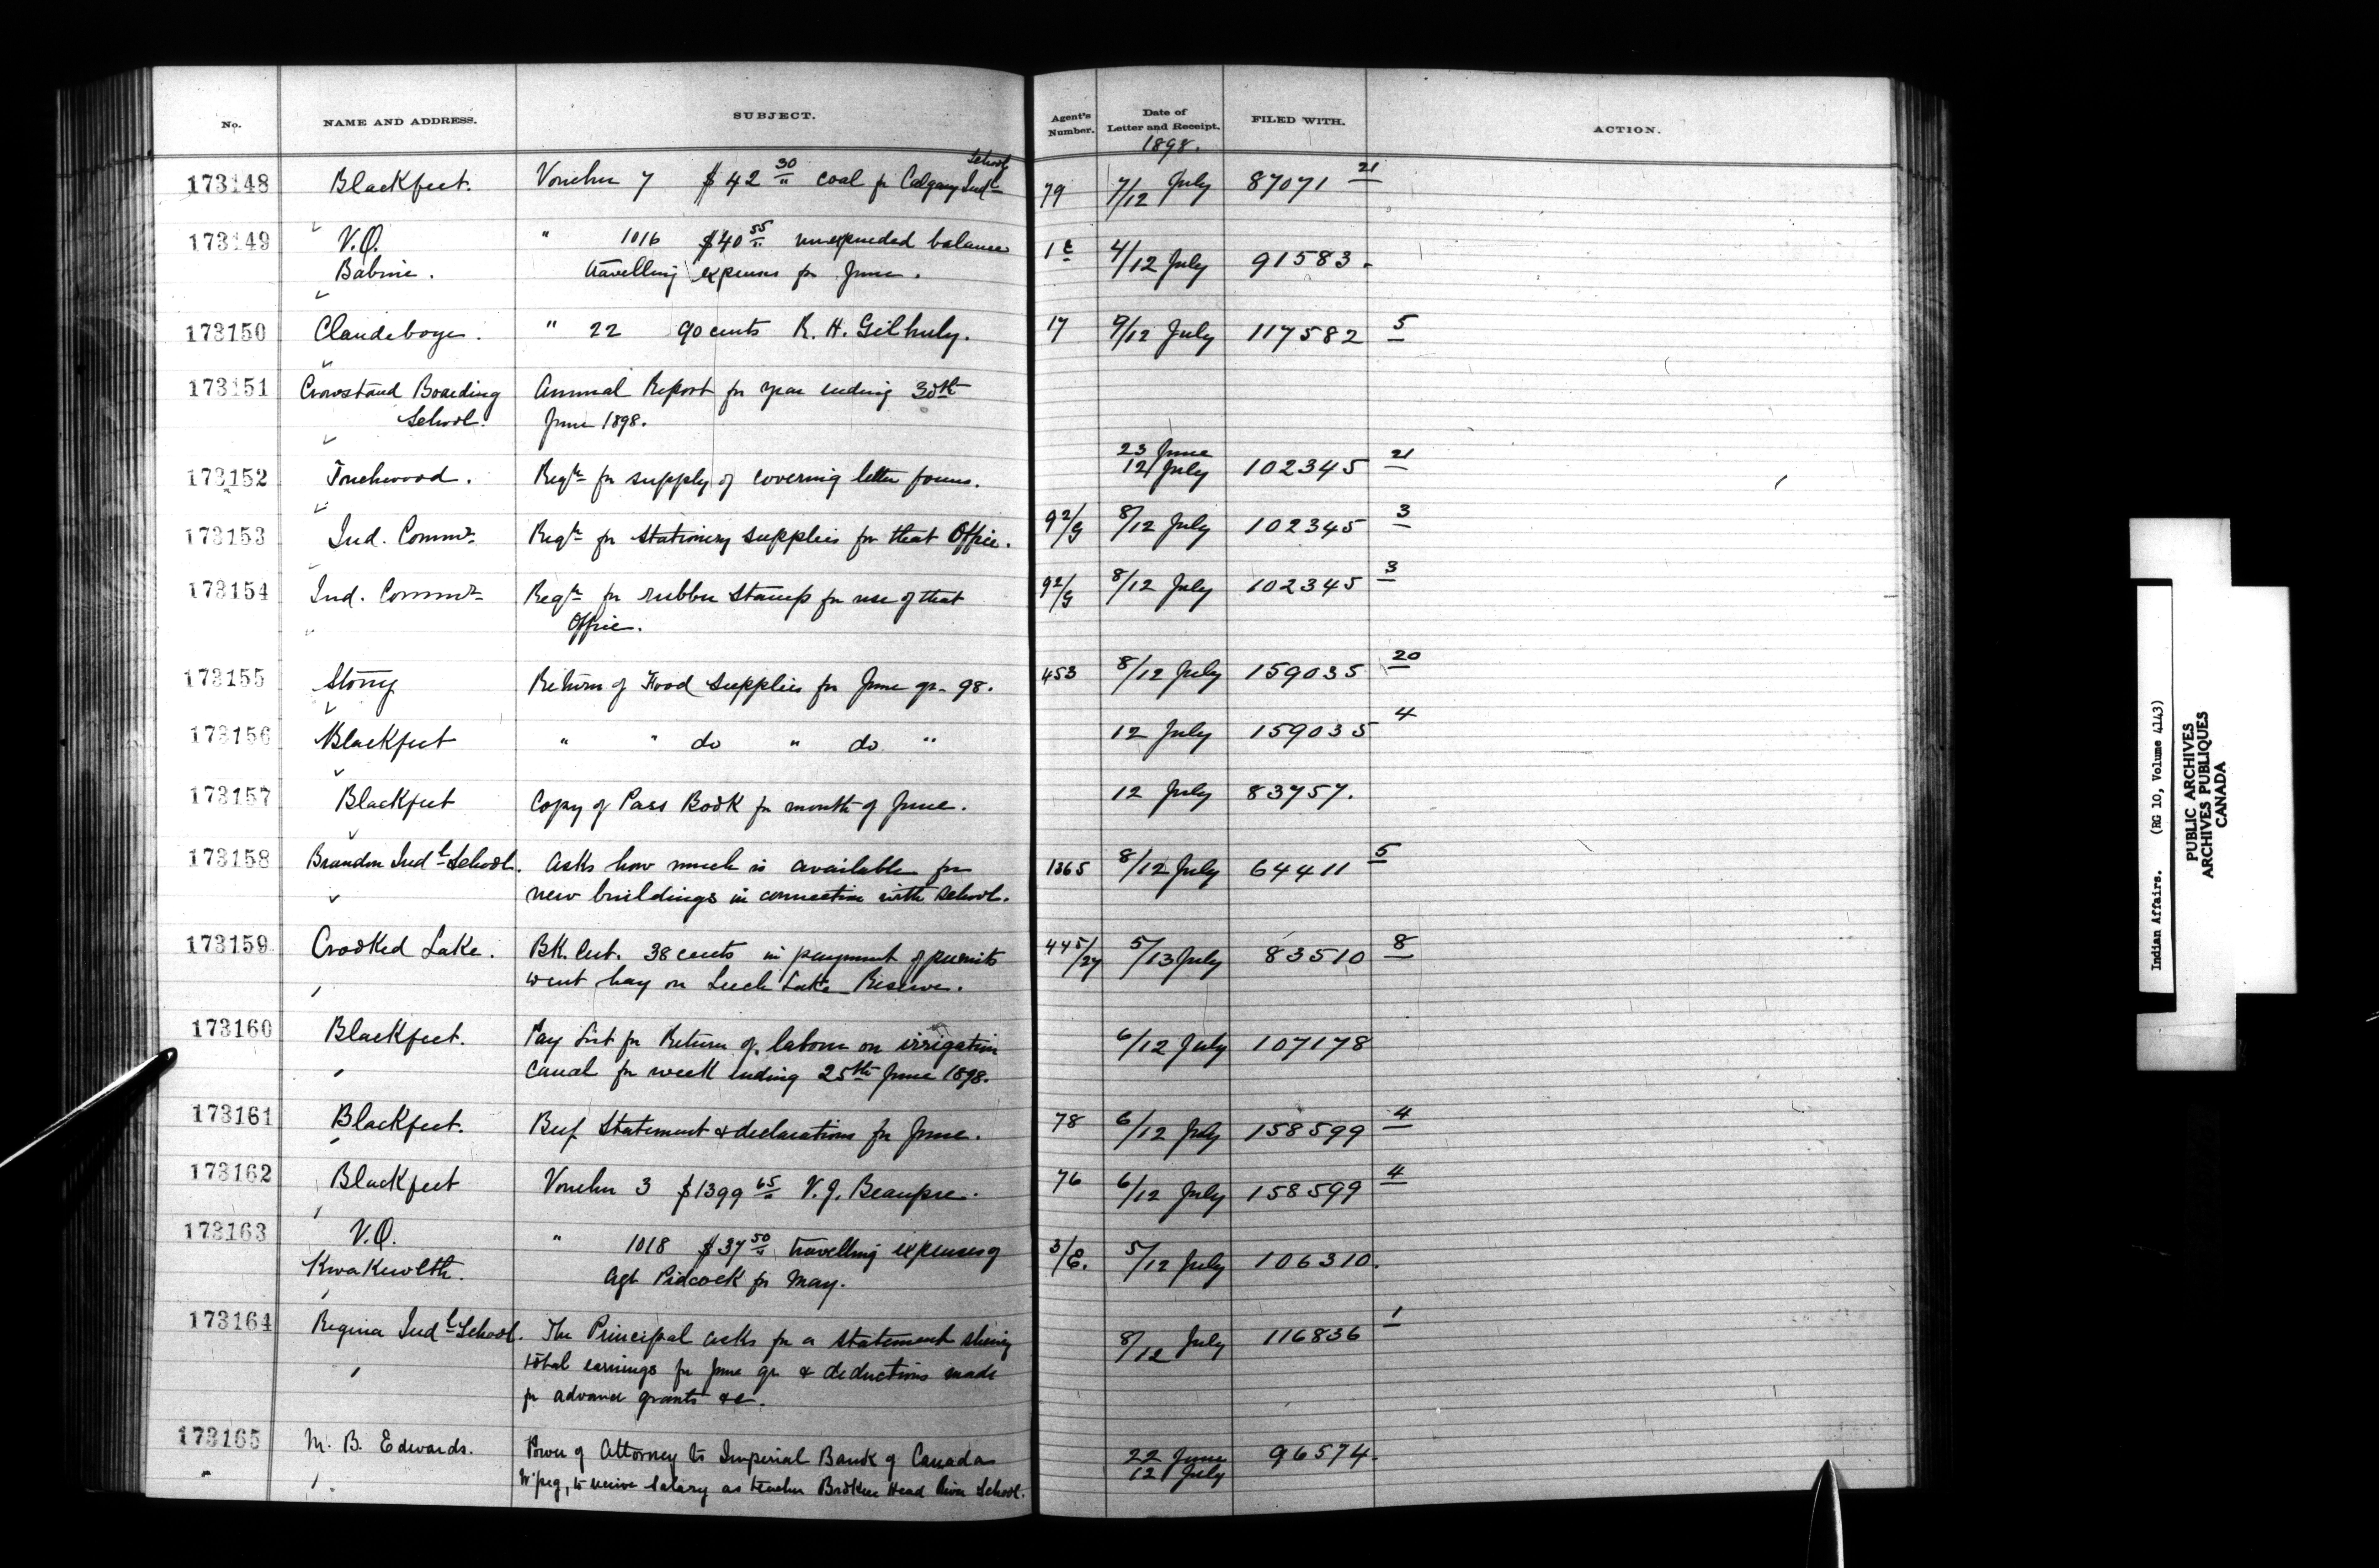 No. NAME AND ADDRESS. SUBJECT. Agent's Number. Date of Letter and Receipt. FILED WITH. ACTION.
1898.
School
173148 Blackfeet. Voucher 7 $42 30/" coal fr Calgary Indl 79 7/12 July 87071 21
173149 V.O. " 1016 $40 55/" unexpended balance 1 E 4/12 July 91583.
Babine. travelling expenses for June.
173150 Clandeboye. " 22 90 cents R. H. Gilhuly. 17 9/12 July 117582 5
173151 Crowstand Boarding Annual Report for year ending 30th
School. June 1898.
23 June
173152 Touchwood. Reqn for supply of covering letter forms. 12 July 102345 21
173153 Ind. Commr Reqn for stationery supplies for that Office. 92/G 8/12 July 102345 3
173154 Ind. Commr Reqn for rubber stamp for use of that 92/G 8/12 July 102345 3
Office.
173155 Stony Return of Food Supplies for June qr. 98. 453 8/12 July 159035 20
173156 Blackfeet " " do " do " 12 July 159035 4
173157 Blackfeet Copy of Pass Book for month of June. 12 July 83757.
173158 Brandon Indl School. Asks how much is available for 1365 8/12 July 64411 5
new buildings in connection with School.
173159 Crooked Lake. BK. cert. 38 cents in payment of permits 445/27 5/13 July 83510 8
to cut hay on Leech Lake Reserve.
173160 Blackfeet. Pay list for Return of labour on irrigation 6/12 July 107178
Canal for week ending 25th June 1898.
173161 Blackfeet. Beef Statement & declarations for June. 78 6/12 July 158599 4
173162 Blackfeet Voucher 3 $1399 65/" V. J. Beaupre. 76 6/12 July 158599 4
173163 V.O. " 1018 $37 50/" travelling expenses of 3/E. 5/12 July 106310.
Kwakewlth. Agt Pidcock for May.
173164 Regina Indl School. The Principal asks for a statement showing 8/12 July 116836 1
total earnings for June qr & deductions made
for advance grants &c.
173165 M. B. Edwards. Power of Attorney to Imperial Bank of Canada 22 June 96574.
W'peg, to receive salary as teacher Broken Head River School. 12 July
Indian Affairs. (RG 10, Volume 4143)
PUBLIC ARCHIVES
ARCHIVES PUBLIQUES
CANADA